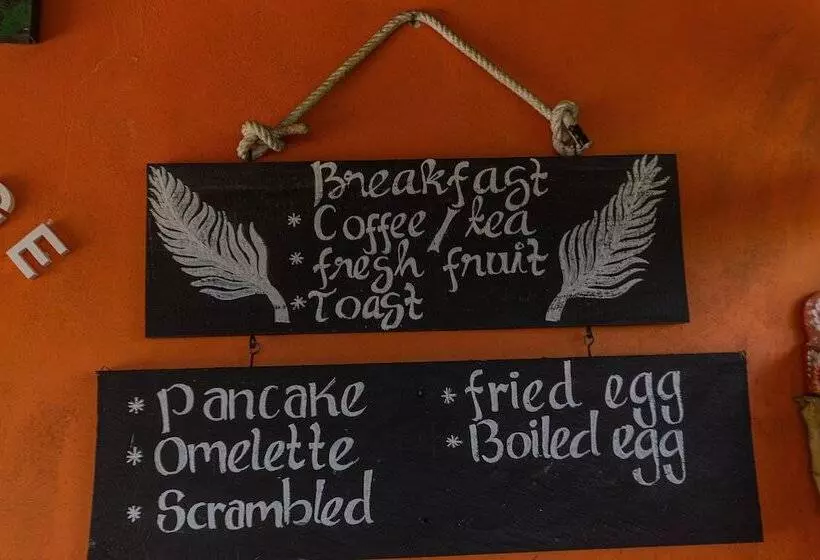 Breakfast
* Coffee/tea
* fresh fruit
* Toast
* Pancake
* Omelette
* Scrambled
* fried egg
* Boiled egg
E